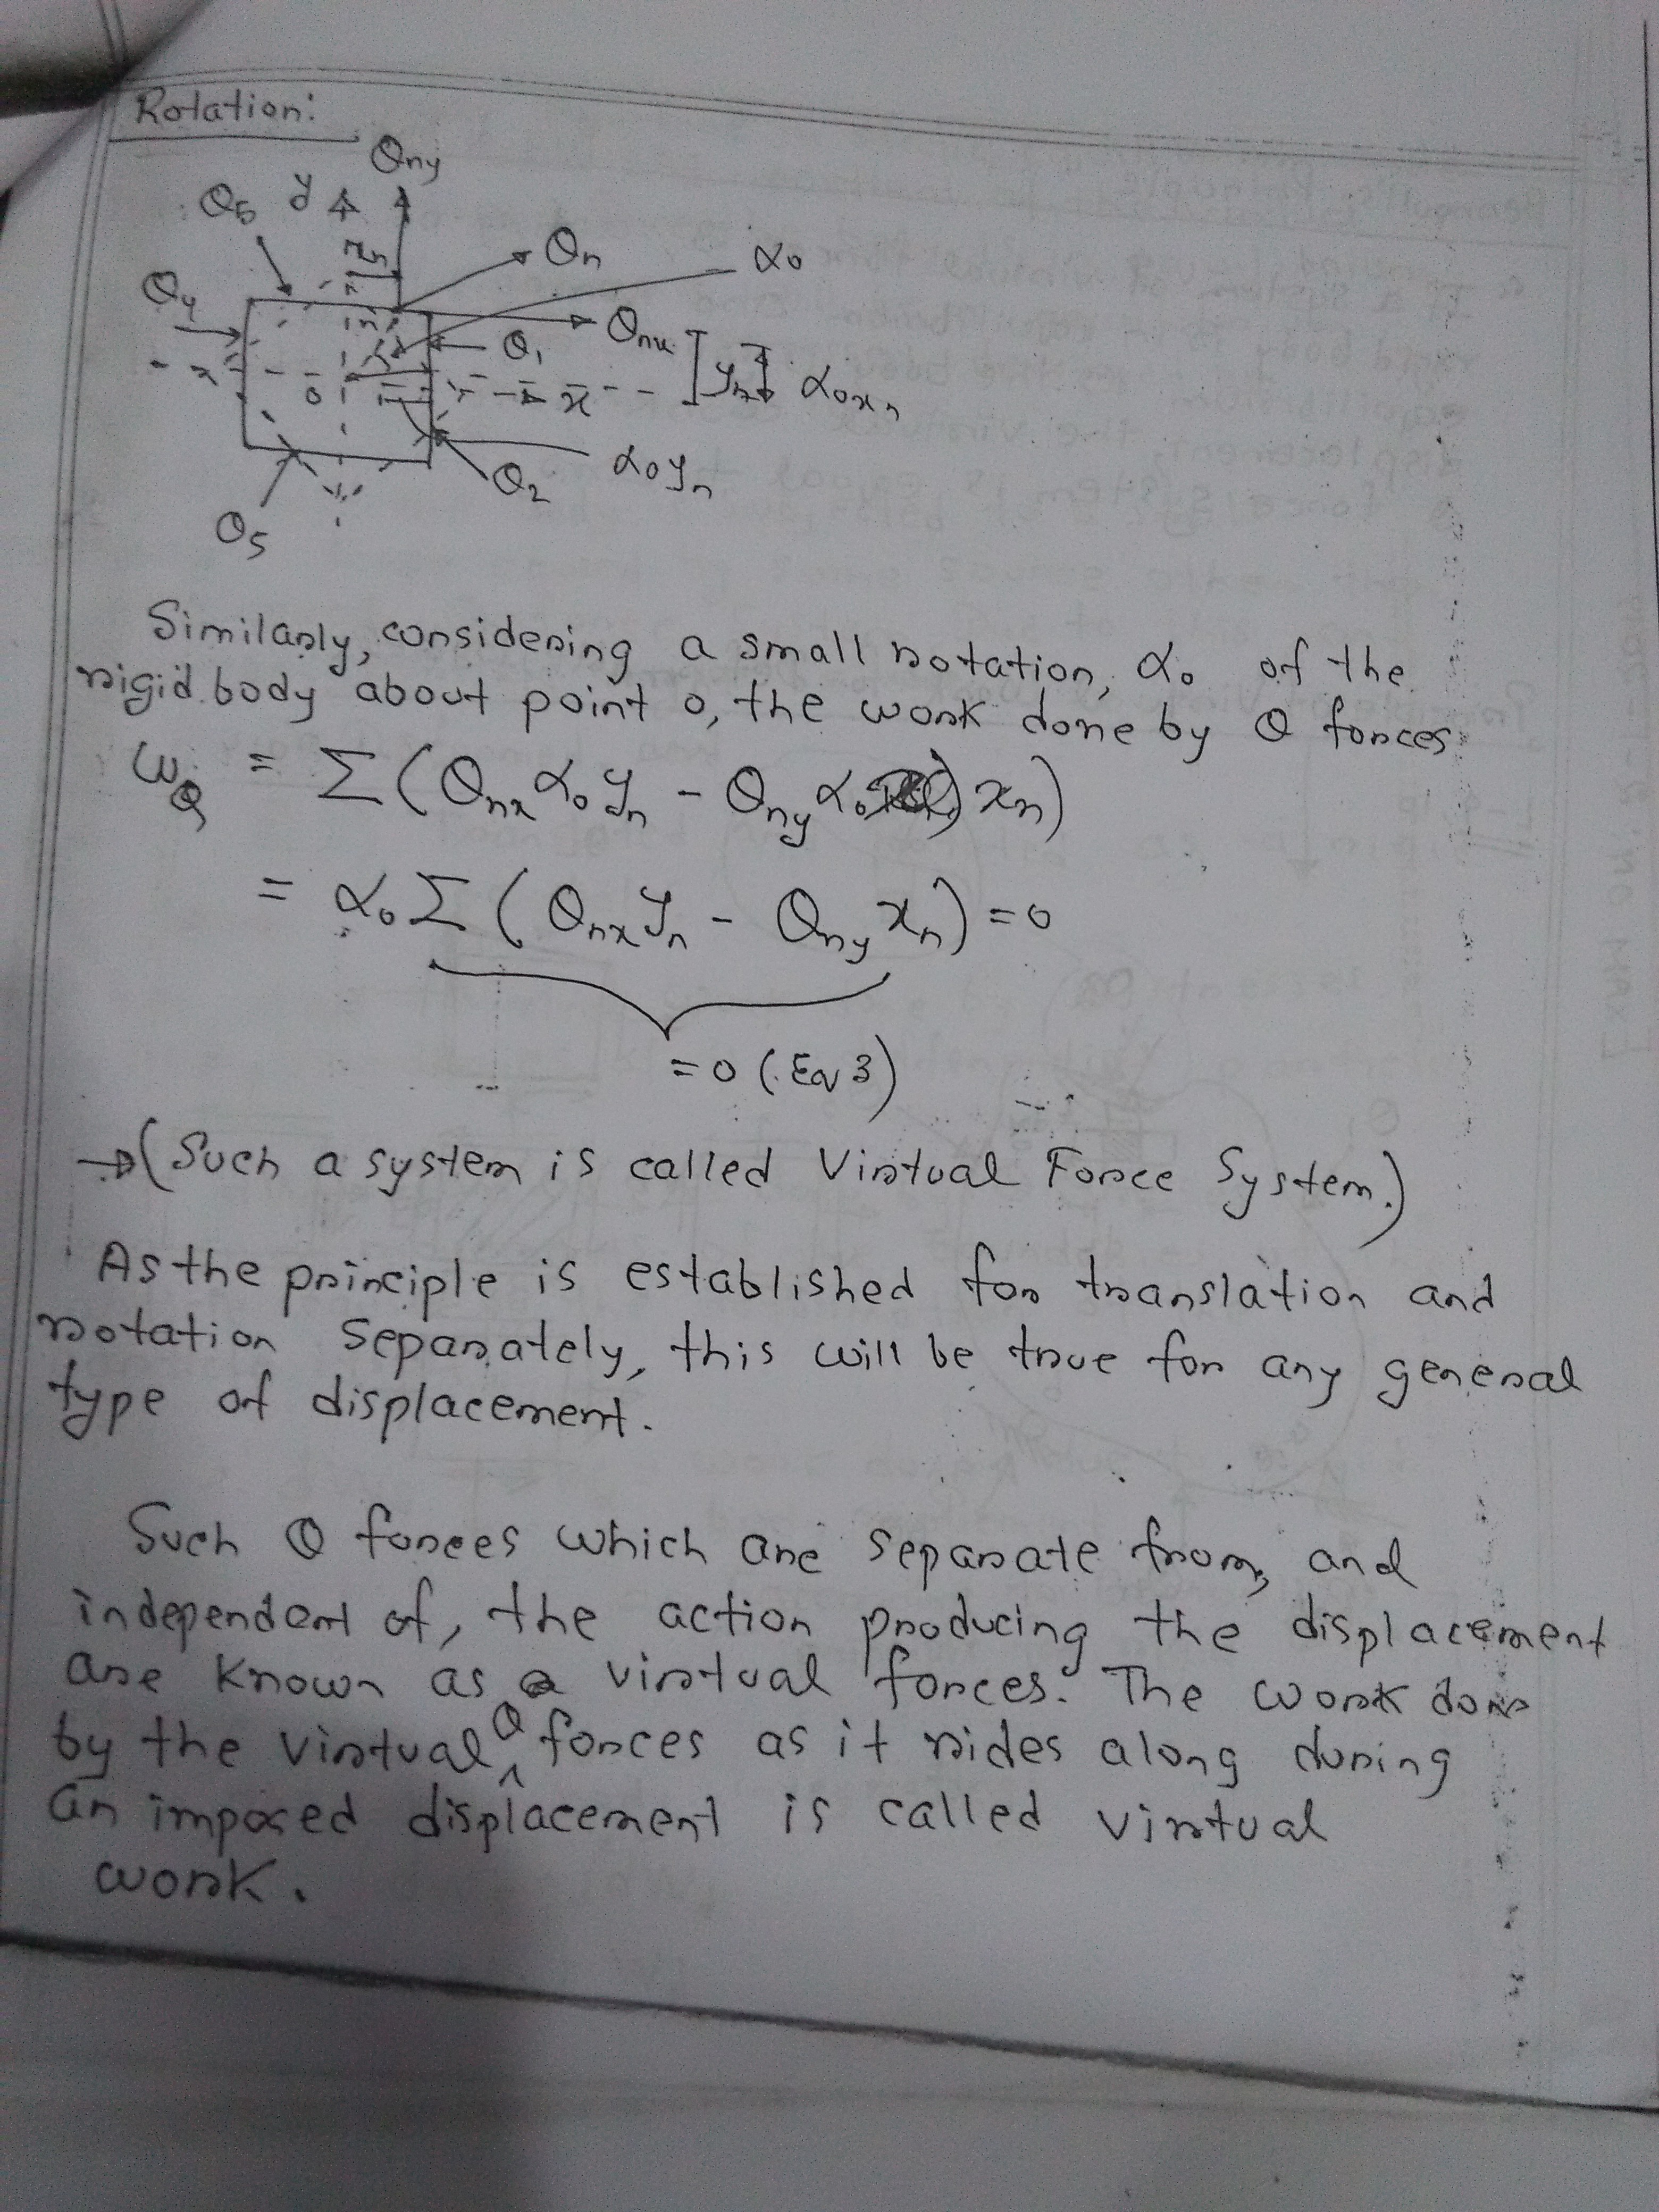 Rotation:
Qny
Q6 y
xn
Qn α0
Q4
Qnx
Q1
yn α0xn
o x
α0yn
Q2
Q5
Similarly, considering a small rotation, α0 of the
rigid body about point o, the work done by Q forces
WQ = Σ(Qnx α0 yn - Qny α0 xn)
= α0 Σ(Qnx yn - Qny xn) = 0
= 0 (Eq 3)
→(Such a system is called Virtual Force System.)
As the principle is established for translation and
rotation separately, this will be true for any general
type of displacement.
Such Q forces which are separate from, and
independent of, the action producing the displacement
are known as virtual forces. The work done
by the virtual Q forces as it rides along during
an imposed displacement is called virtual
work.